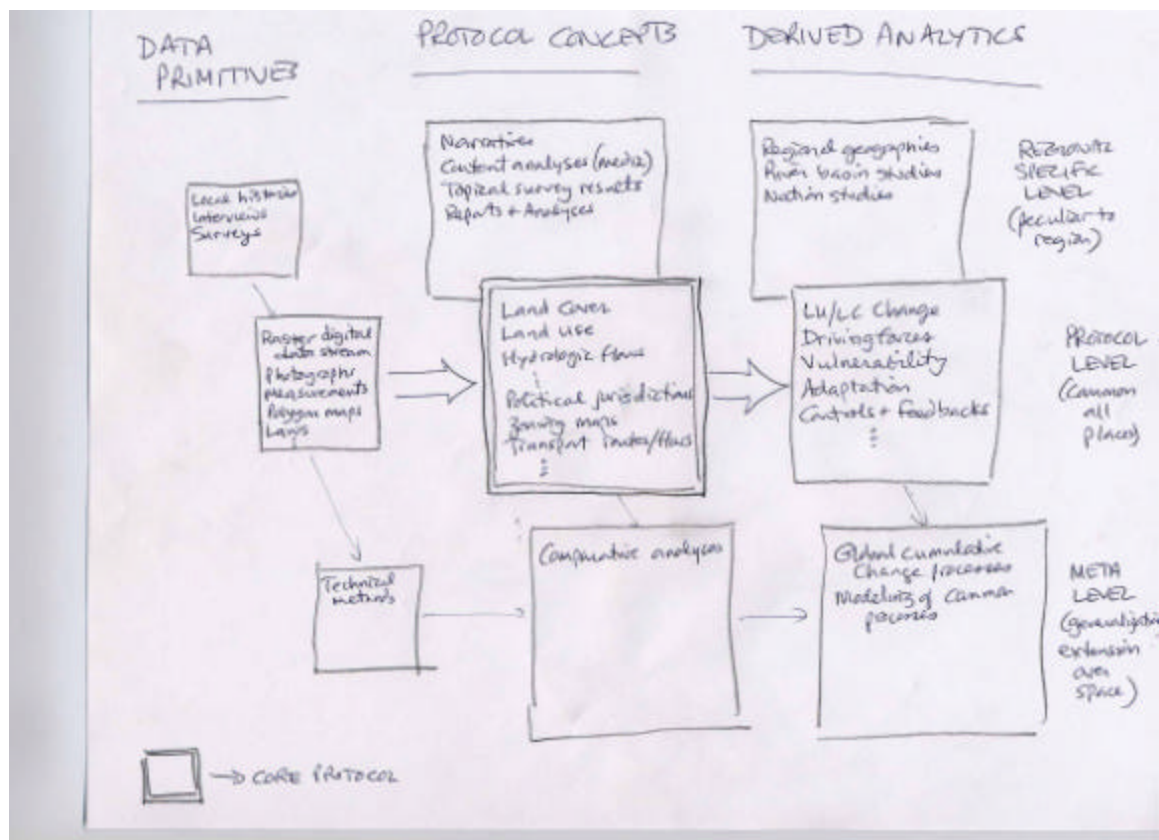 DATA
PRIMITIVES
PROTOCOL CONCEPTS
DERIVED ANALYTICS
Local histories
Interviews
Surveys
Narratives
Content analyses (media)
Topical survey results
Reports + Analyses
Regional geographies
River basin studies
Nation studies
REGIONAL
SPECIFIC
LEVEL
(peculiar to
region)
Raster digital
data stream
Photographs
Measurements
Polygon maps
Laws
Land Cover
Land Use
Hydrologic flows
Political jurisdictions
Zoning maps
Transport routes/flows
LU/LC Change
Driving forces
Vulnerability
Adaptation
Controls + feedbacks
PROTOCOL
LEVEL
(Common
all
places)
Technical
methods
Comparative analyses
Global cumulative
Change processes
Modeling of Common
processes
META
LEVEL
extension
over
space)
CORE PROTOCOL